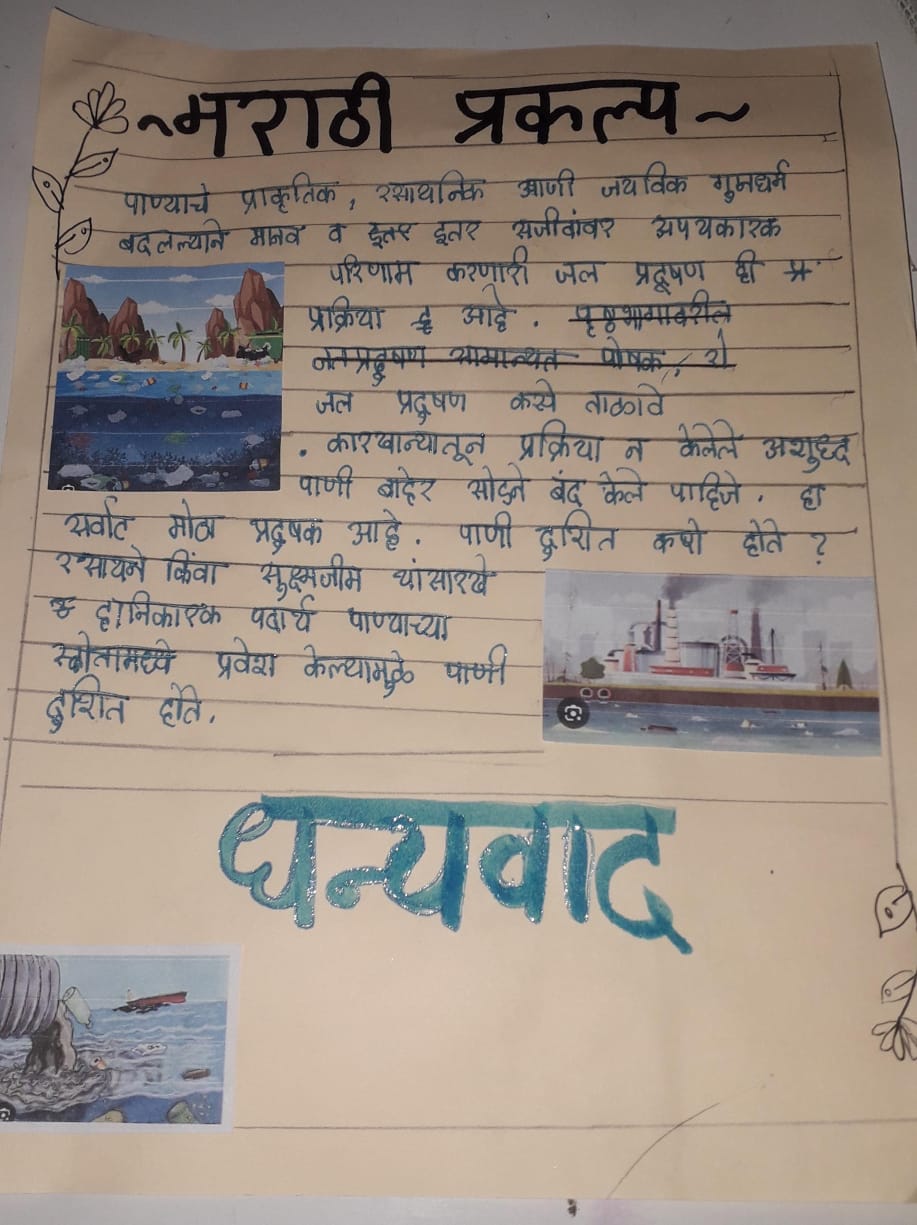 ~मराठी प्रकल्प~
पाण्याचे प्राकृतिक, रसायनिक आणी जयविक गुमधर्म
बदलल्याने मानव व इतर इतर सजीवांवर अपयकारक
परिणाम करणारी जल प्रदूषण ही प्र
प्रक्रिया आहे. पृष्ठभागावरील
जलप्रदुषण सामान्यत पोषक, रो
जल प्रदुषण कसे ताळावे
. कारखान्यातून प्रक्रिया न केलेले अशुध्द
पाणी बाहेर सोडने बंद केले पाहिजे. हा
सर्वात मोठा प्रदुषक आहे. पाणी दुशित कषे होते ?
रसायने किंवा सुक्ष्मजीम यांसारखे
हानिकारक पदार्थ पाण्याच्या
स्त्रोतामध्ये प्रवेश केल्यामुळे पाणी
दुशित होते.
धन्यवाद